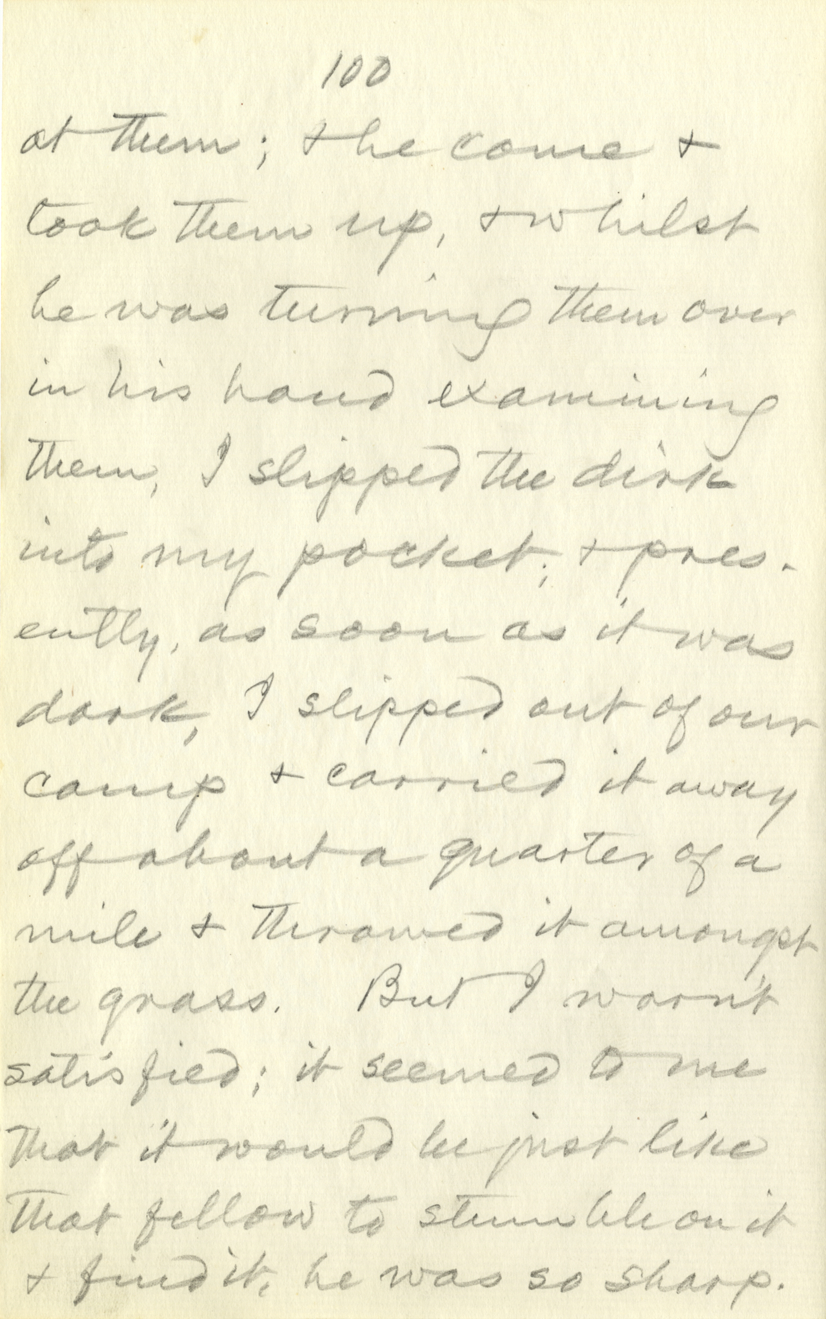 100
at them; & he come &
took them up, & whilst
he was turning them over
in his hand examining
them, I slipped the dirk
into my pocket; & pres-
ently, as soon as it was
dark, I slipped out of our
camp & carried it away
off about a quarter of a
mile & throwed it amongst
the grass. But I warn't
satisfied; it seemed to me
that it would be just like
that fellow to stumble on it
& find it, he was so sharp.